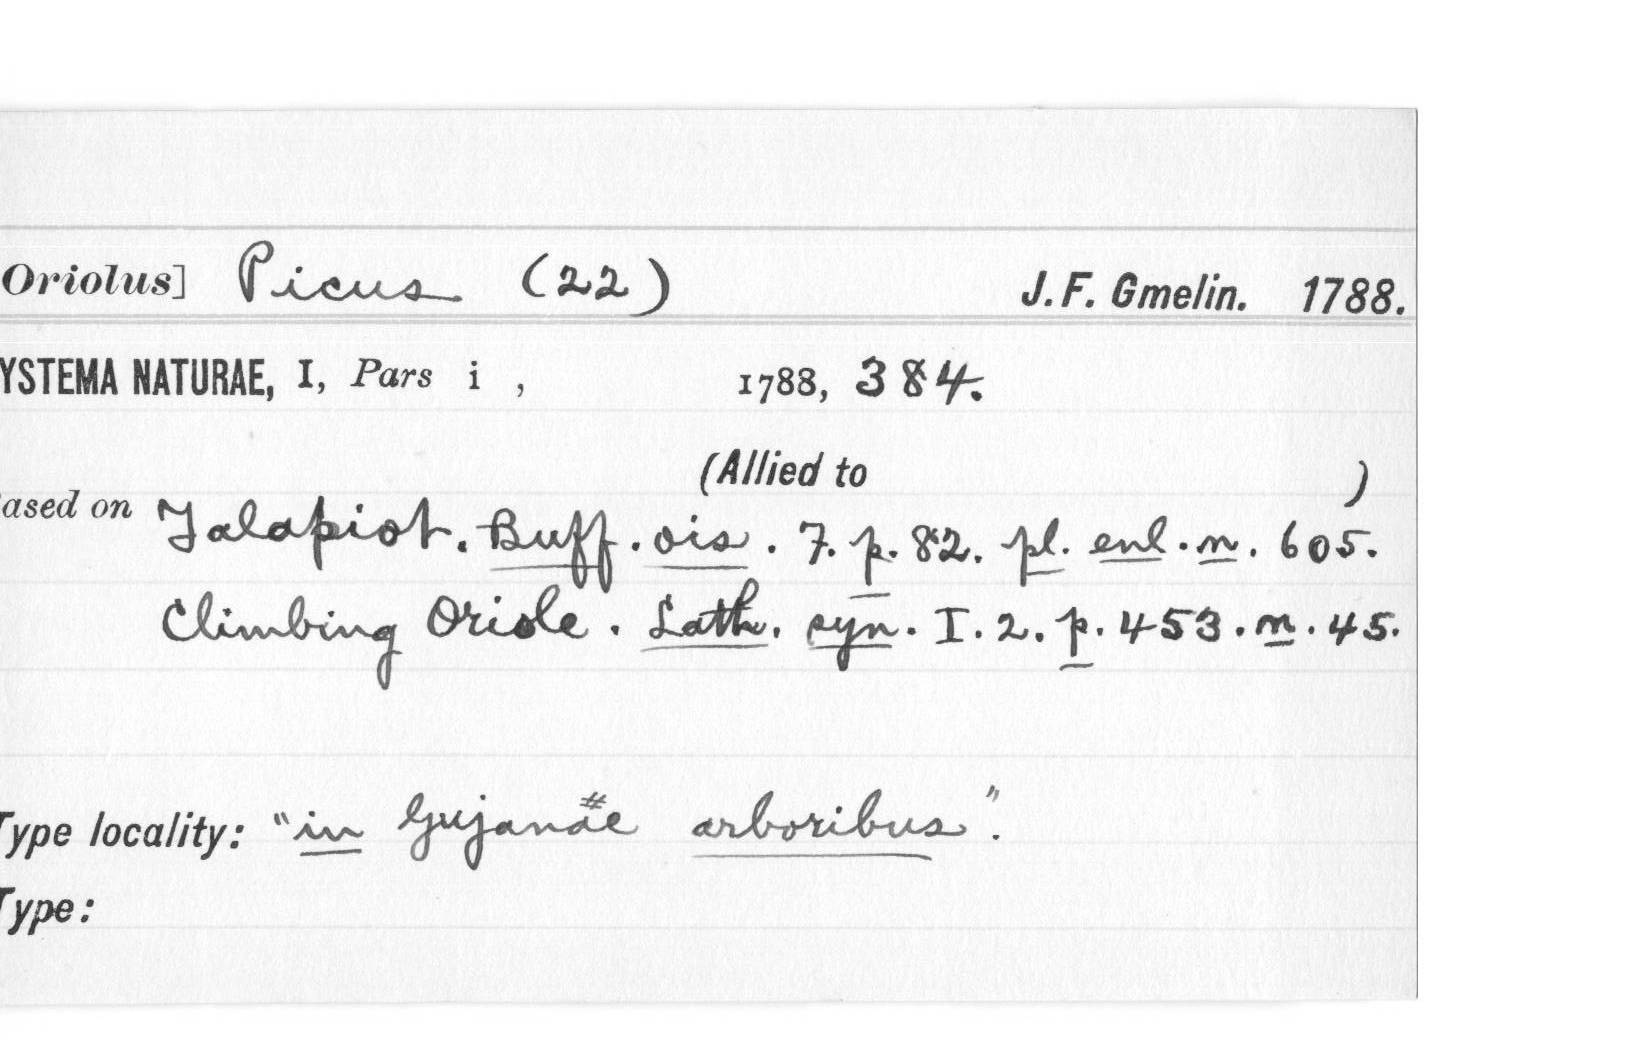 Oriolus] Picus (22) J. F. Gmelin. 1788.
YSTEMA NATURAE, I, Pars i , 1788, 384.
(Allied to )
ased on Talapiot. Buff. ois. 7. p. 82. pl. enl. n. 605.
Climbing Oriole. Lath. syn. I. 2. p. 453. n. 45.
Type locality: "in Gujanae # arboribus".
Type: